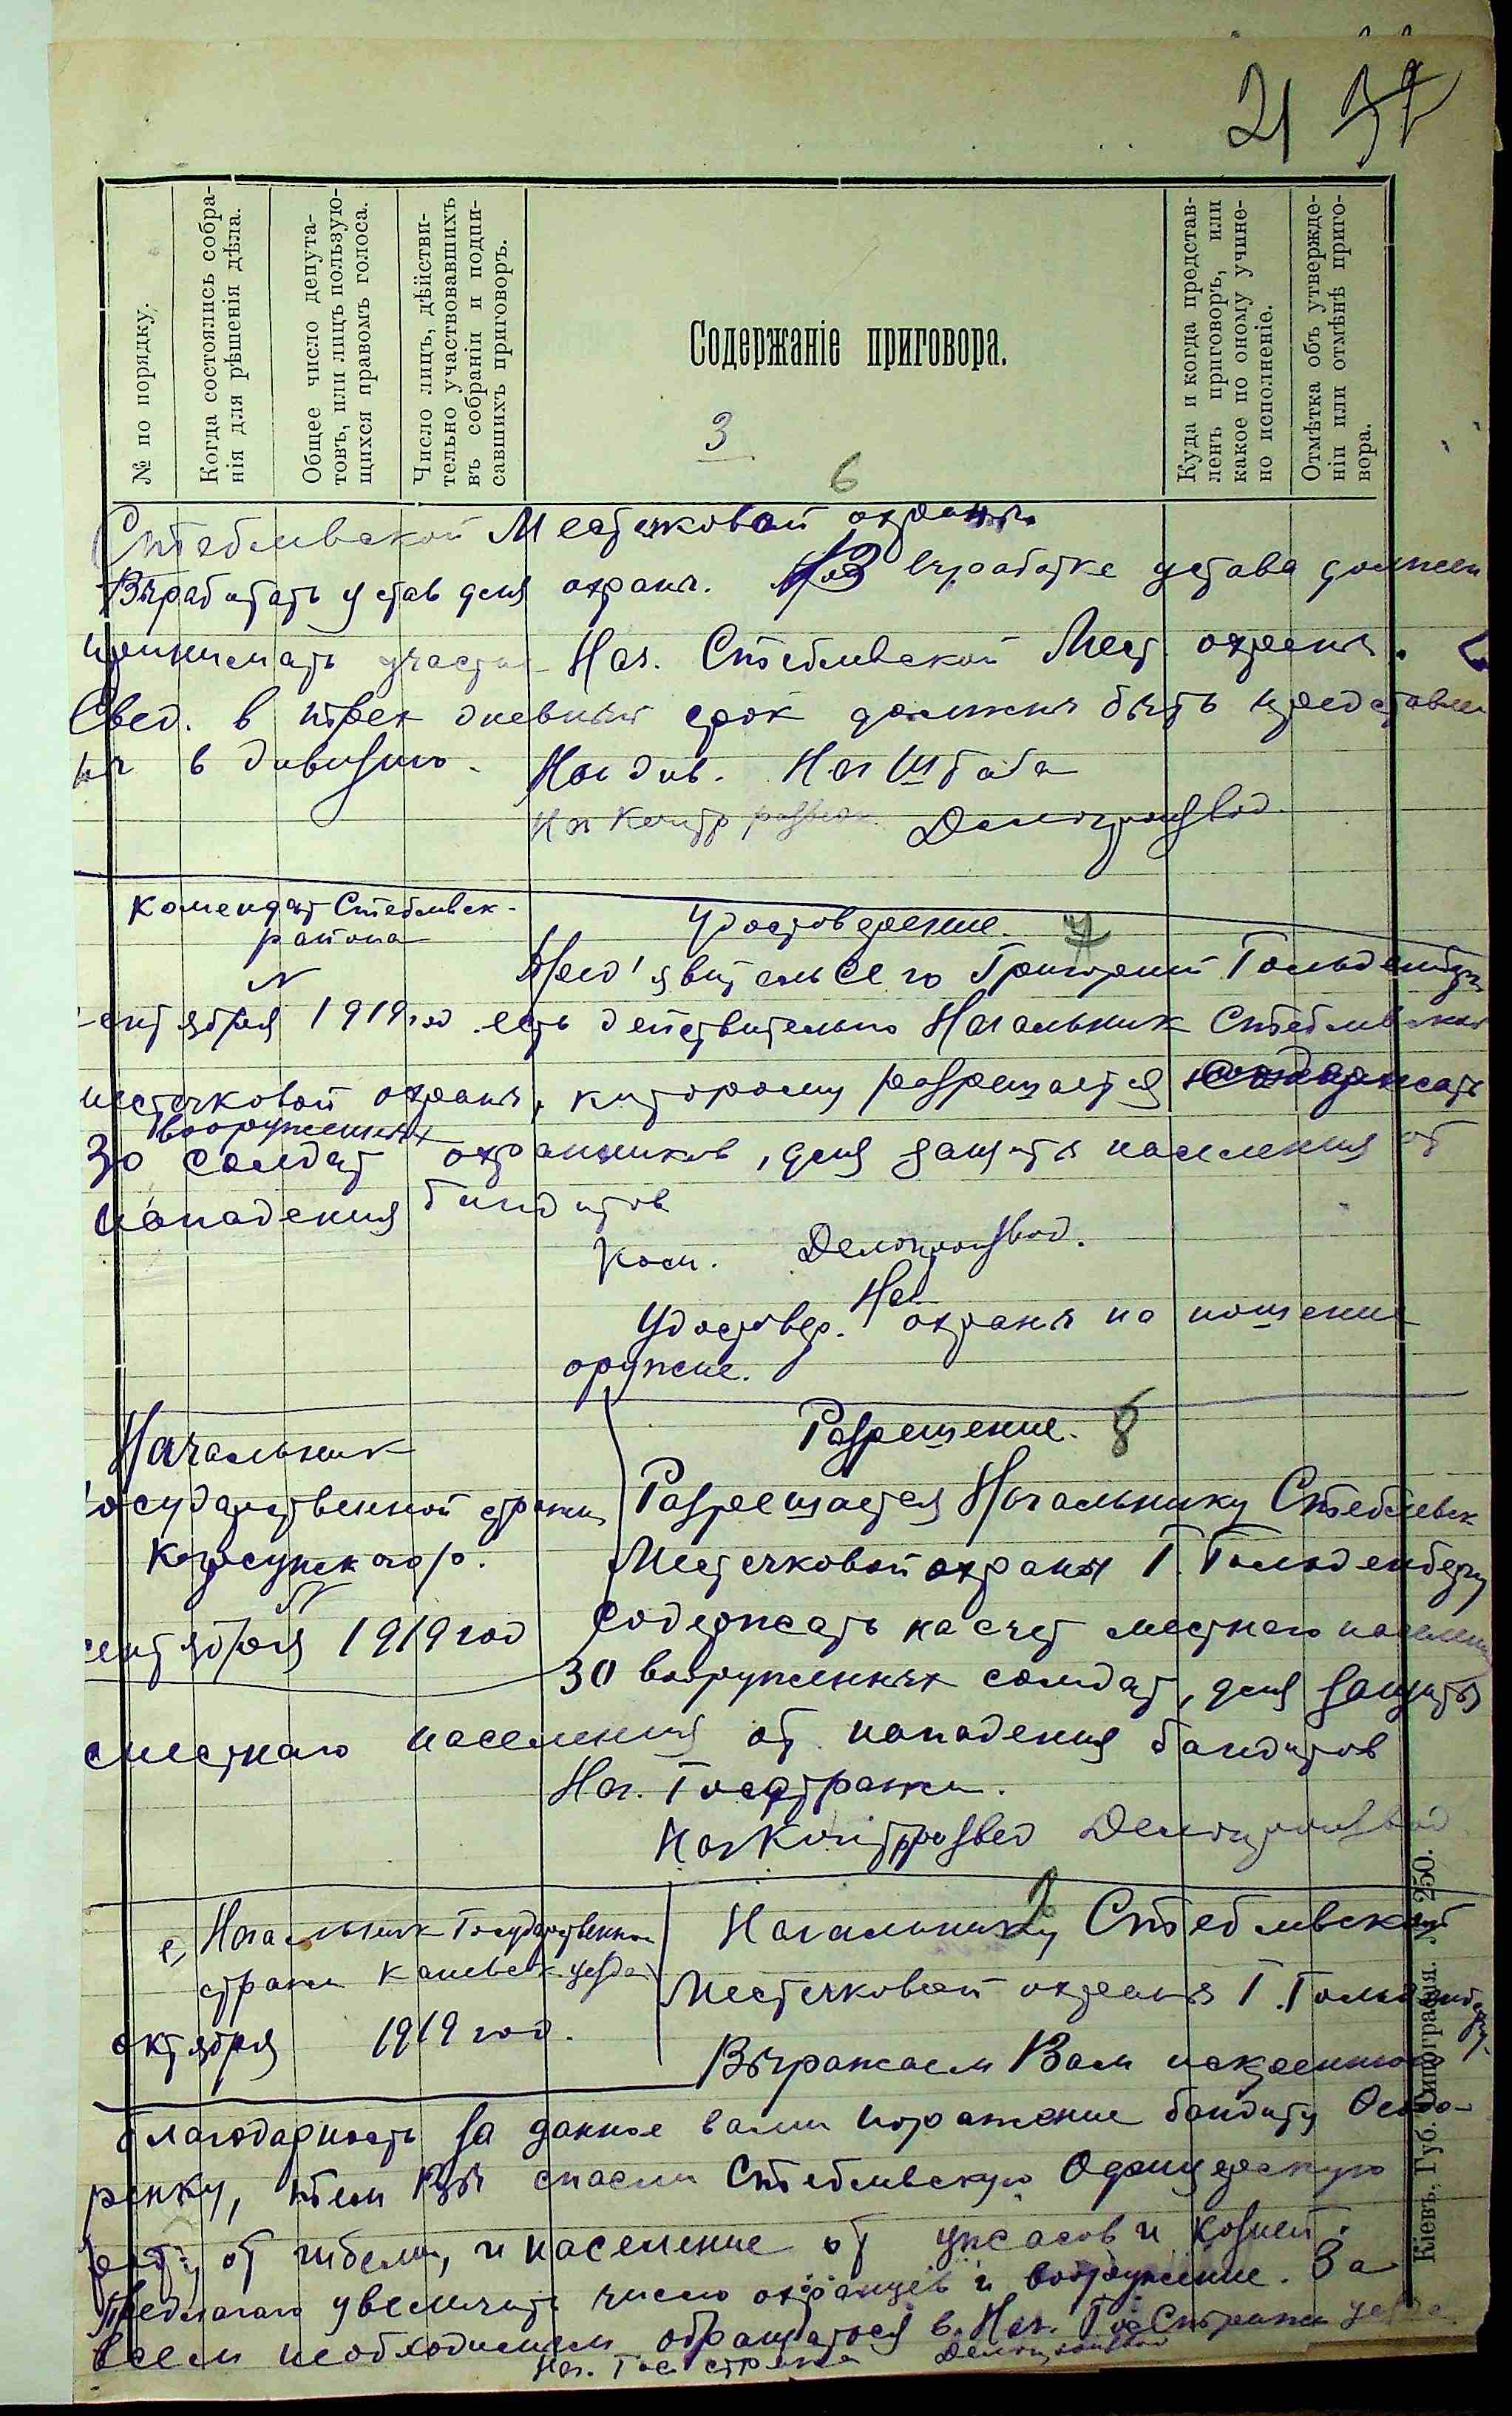 21 37
№ по порядку.
Когда состоялись собра-
нія для рѣшенія дѣла.
Общее число депута-
товъ, или лицъ пользую-
щихся правомъ голоса.
Число лицъ, дѣйстви-
тельно участвовавшихъ
въ собраніи и подпи-
савшихъ приговоръ.
Содержаніе приговора.
Куда и когда представ-
ленъ приговоръ, или
какое по оному учине-
но исполненіе.
Отмѣтка объ утвержде-
ніи или отмѣнѣ приго-
вора.
3
6
Стебливской Местечковой охраны
Выработать устав для охраны. В выработке устава должен
принимать участие Нач. Стебливской Мест. охраны.
Свед. в трех дневный срок должны быть представлен
ны в дивизию. Начдив. Нач Штаба
Нач Контр развед. Делопроизвод.
Комендат Стебливск.
района
N
Удостоверение. 7
Пред'явитель сего Григорий Гольденберг
сентября 1919 год есть действительно Начальник Стебливской
местечковой охраны, которому разрешается содержать
вооруженных
30 солдат охранников, для защиты населения от
нападения бандитов
Ком. Делопроизвод.
Удостовер. Нач охраны на ношение
оружие.
Начальник
Государственной стражи
Корсунского р.
N
сентября 1919 год
Разрешение. 8
Разрешается Начальнику Стеблевск
Местечковой охраны Г. Гольденбергу
содержать на счет местного населения
30 вооруженных солдат, для защиты
местного населения от нападения бандитов
Нач. Госстражи.
Нач Контрразвед Делопроизвод
Начальник Государственной
стражи Каневск уезда
октября 1919 год.
Начальнику Стебливской
Местечковой охраны Г. Гольденбергу.
Выражаем Вам искреннюю
благодарность за данное вами поражение бандиту
тем Вы спасли Стебливскую Офицерскую
роту от гибели, и население от ужасов и козней.
Предлагаю увеличить число охранцев и вооружение. За
всем необходимым обращаться в. Нач. Гос Стражи уезда
Нач. Гос стражи Делопроизвод
Кіевъ, Губ. Типографія. № 250.